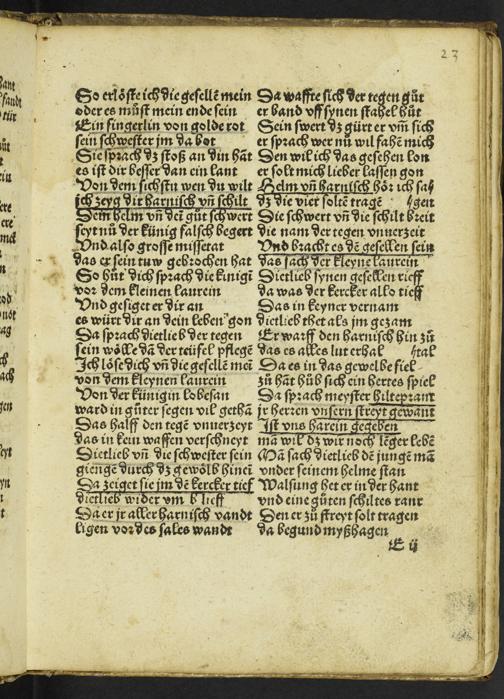 23
So erlöste ich die geselle̅ mein
oder es müst mein ende sein
Ein fingerlin von golde rot
sein schwester jm da bot
Sie sprach dz stoß an din hāt
es ist dir besser dan ein lant
Von dem sichstu wen du wilt
ich zeyg dir harnisch vn̅ schilt
Dem helm vn̅ de̅ gůt schwert
seyt nů der künig falsch begert
Vnd also grosse missetat
das er sein tuw gebrochen hat
So hůt dich sprach die kinigī
vor dem kleinen laurein
Vnd gesiget er dir an
es würt dir an dein leben gon
Da sprach dietlieb der tegen
sein wölle da̅ der teüfel pflege̅
Ich löse dich vn̅ die geselle̅ mei̅
von dem kleynen laurein
Von der künigin lobesan
ward in gůter segen vil gethā
Das halff den tege̅ vnuerzeyt
das in kein waffen verschneyt
Dietlieb vn̅ die schwester sein
gienge̅ durch dz gewölb hinei̅
Da zeiget sie jm de̅ kercker tief
dietlieb wider vm b lieff
Da er jr aller harnisch vandt
ligen vor des sales wandt
Da waffte sich der tegen gůt
er band vff synen stahel hůt
Sein swert dz gürt er vm̅ sich
er sprach wer nů wil fahe̅ mich
Den wil ich das gesehen lon
er solt mich lieber lassen gon
Helm vn̅ harnisch hör ich sag
dz die vier solte̅ trage̅ gen
Sie schwert vn̅ die schilt breit
die nam der tegen vnuerzeit
Vnd bracht es de̅ gesellen sein
das sach der kleyne laurein
Dietlieb synen gesellen rieff
da was der kercker also tieff
Das in keyner vernam
dietlieb thet als jm gezam
Er warff den harnisch hin zů
das es alles lut erhal tal
Da es in das gewelbe fiel
zů ha̅t hůb sich ein hertes spiel
Da sprach meyster hilteprant
jr herren vnsern streyt gewant
Ist vns harein gegeben
ma̅ wil dz wir noch le̅ger lebe̅
Ma̅ sach dietlieb de̅ junge̅ ma̅
vnder seinem helme stan
Walsung het er in der hant
vnd eine gůten schiltes rant
Den er zů streyt solt tragen
da begund myßhagen
E ij